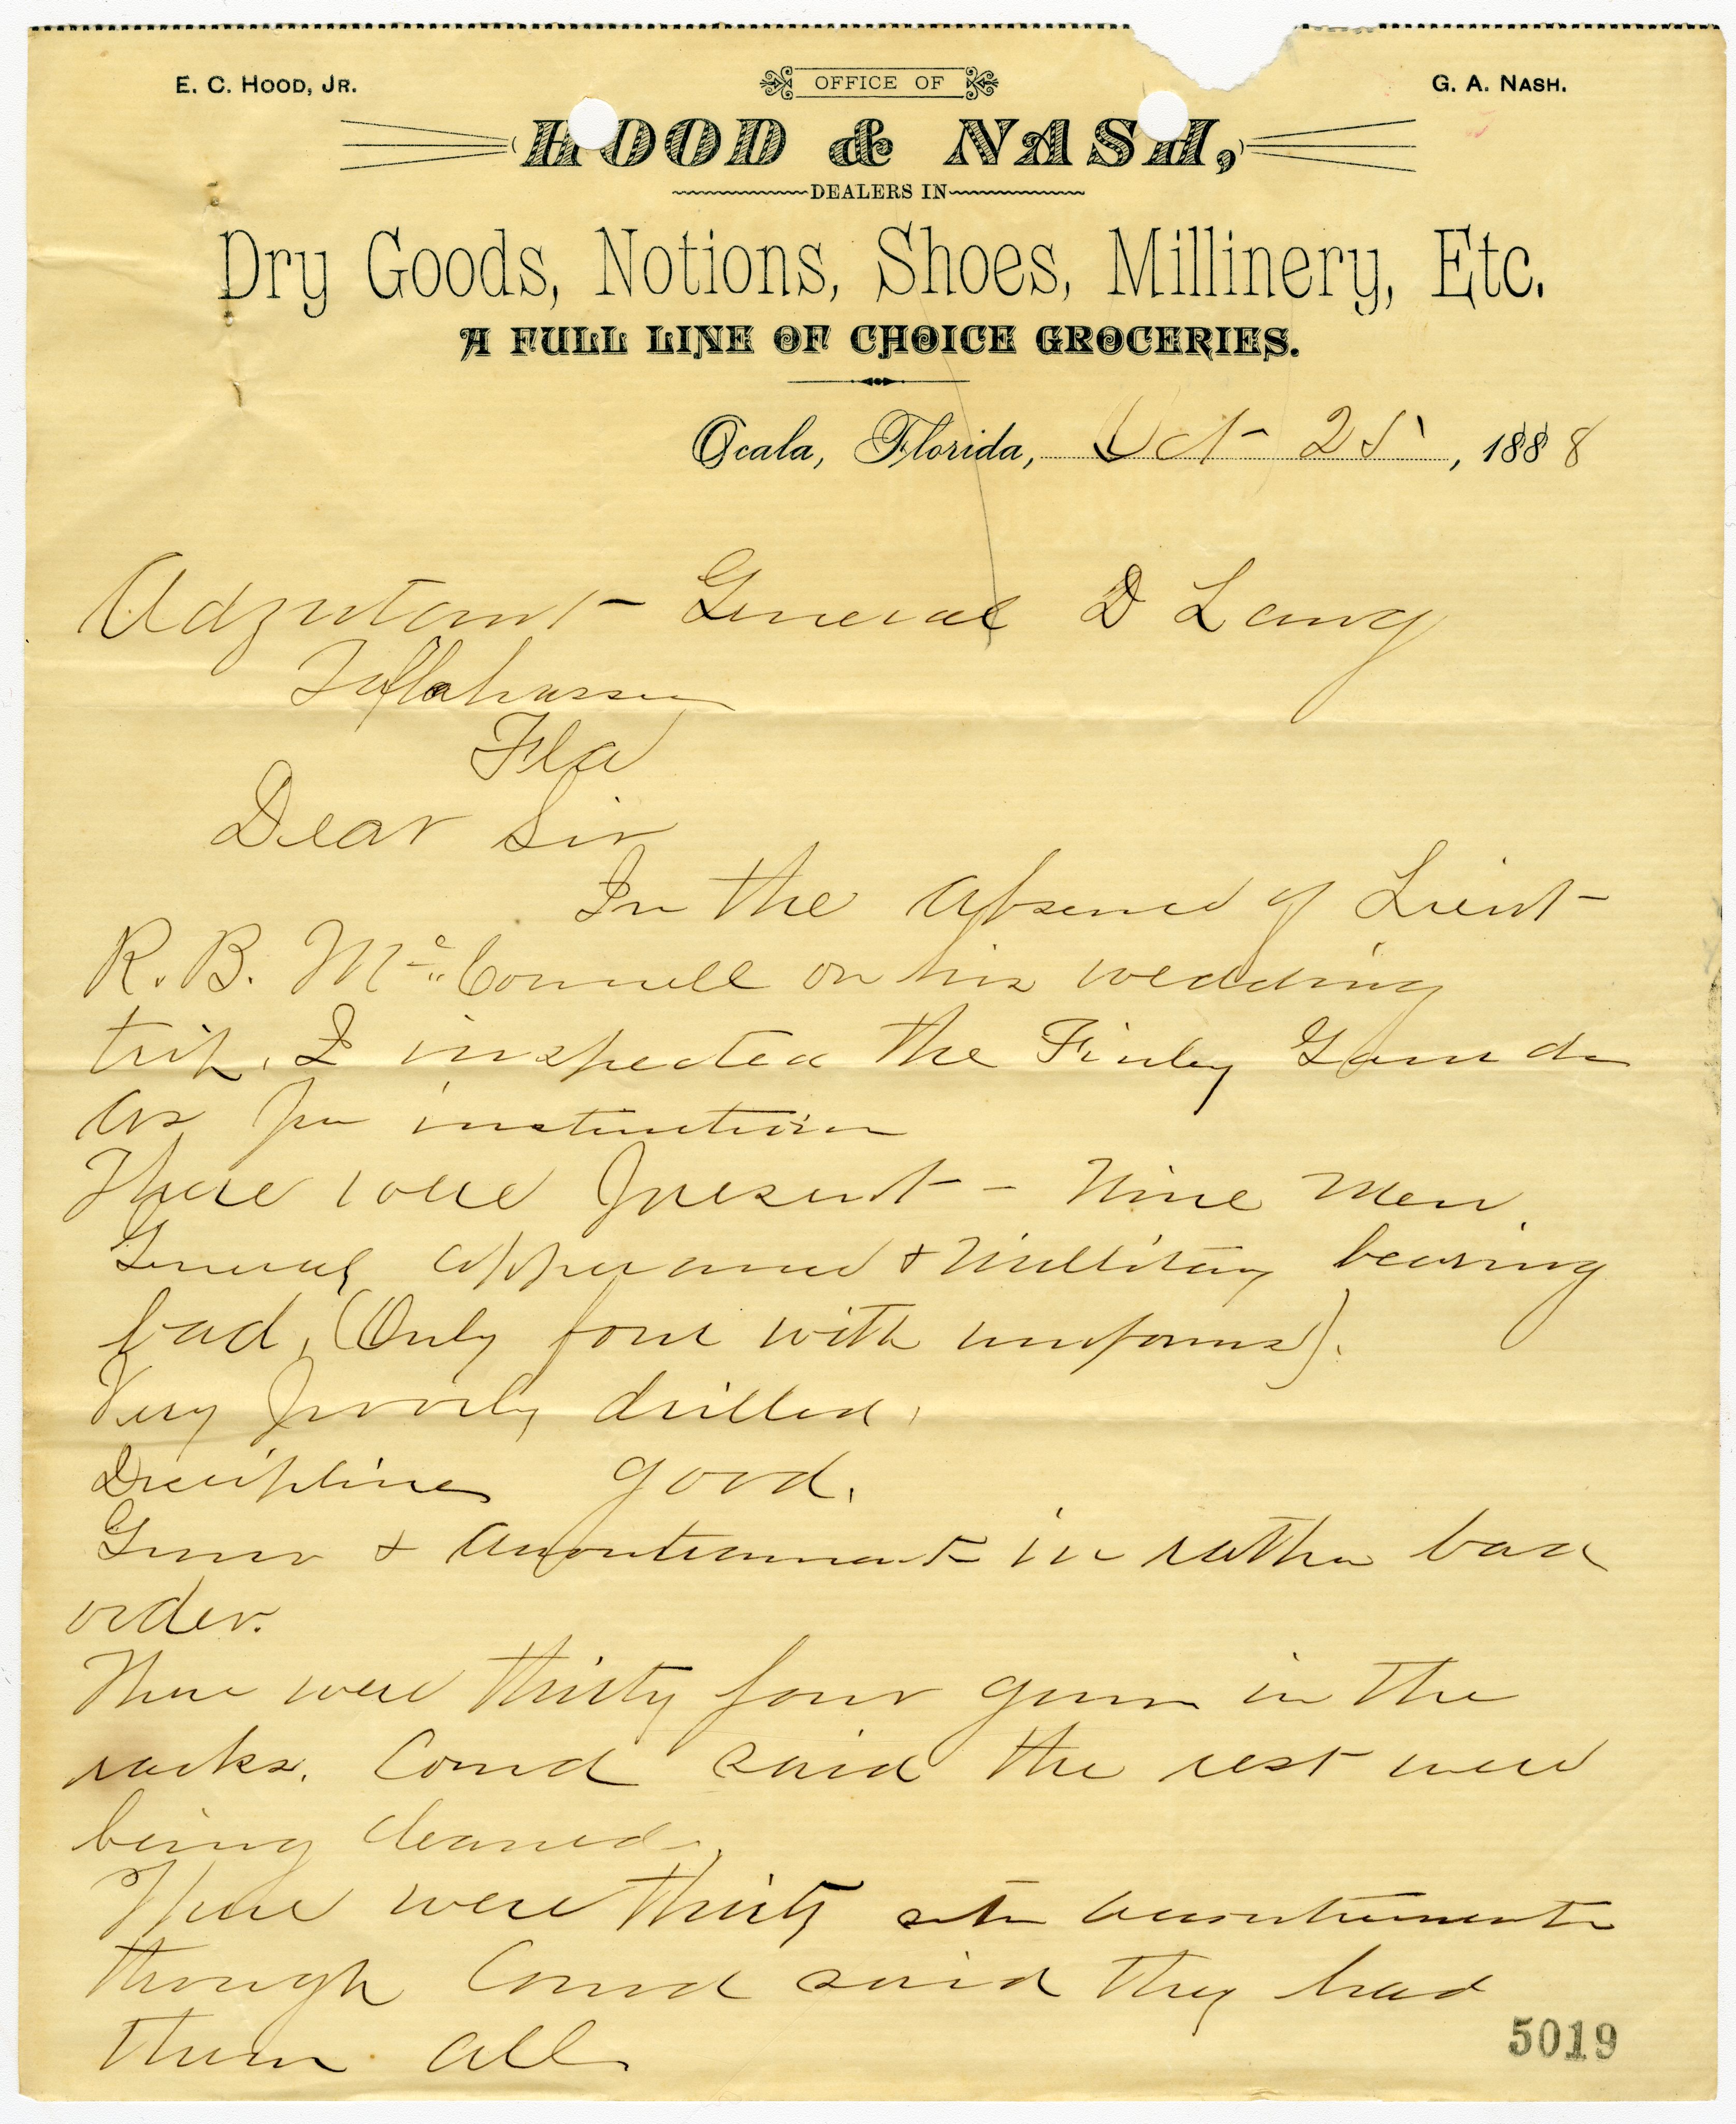 E. C. HOOD, JR.
OFFICE OF
G. A. NASH.
HOOD & NASH,
DEALERS IN
Dry Goods, Notions, Shoes, Millinery, Etc.
A FULL LINE OF CHOICE GROCERIES.
Ocala, Florida, Oct 25, 1888
Adjutant General D Lang
Tallahassee
Fla
Dear Sir
In the absence of Lieut
R. B. McConnell on his wedding
trip, I inspected the Finley Guards
as per instruction
There were present - Nine Men.
General appearance & Millitary bearing
bad, (Only four with uniforms).
Very poorly drilled,
Discipline good.
Guns & Accoutrements in rather bad
order.
There were thirty four guns in the
racks. Comd said the rest were
being cleaned.
There were thirty sets accoutrements
though Comd said they had
them all
5019